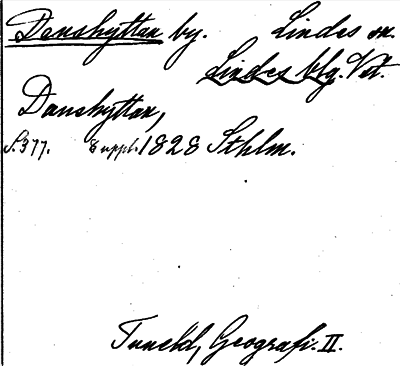 Danshyttan by. Lindes sn.
Lindes blg. Vstm.
Danshyttan,
S. 377. Suppl. 1828 Sthlm.
Tuneld, Geografi. II.